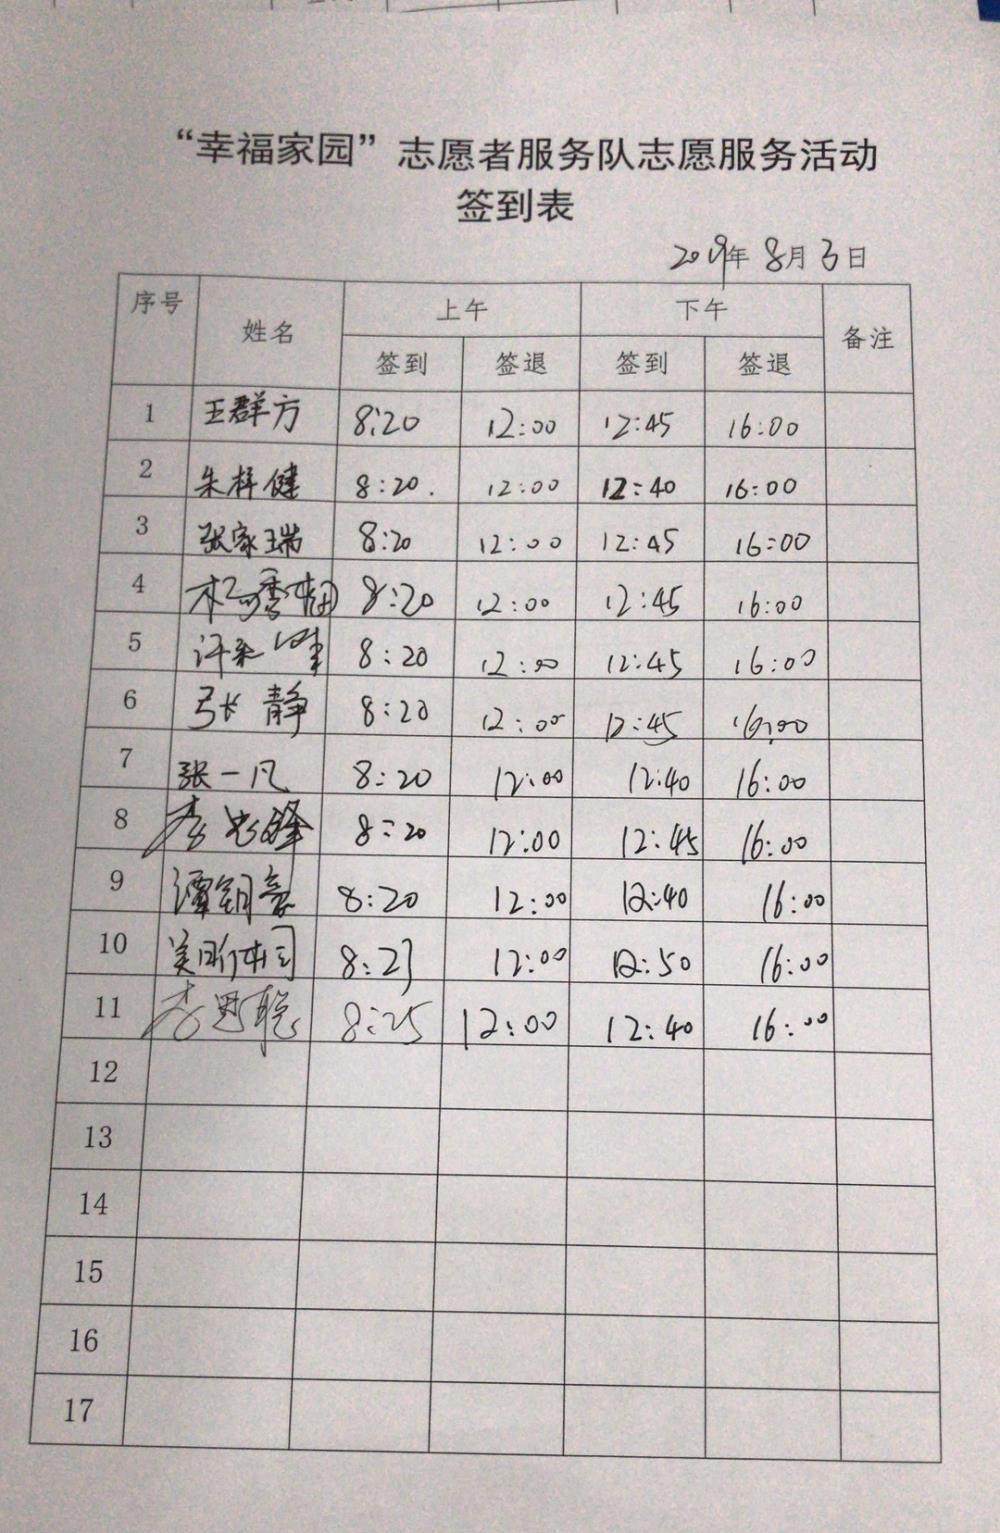 “幸福家园”志愿者服务队志愿服务活动
签到表
2019年 8月 3日
序号 姓名 上午 下午 备注
签到 签退 签到 签退
1 王群方 8:20 12:00 12:45 16:00
2 朱梓健 8:20. 12:00 12:40 16:00
3 张家瑞 8:20 12:00 12:45 16:00
4 8:20 12:00 12:45 16:00
5 8:20 12:00 12:45 16:00
6 张静 8:20 12:00 12:45 16:00
7 张一凡 8:20 12:00 12:40 16:00
8 李 8:20 12:00 12:45 16:00
9 谭钥豪 8:20 12:00 12:40 16:00
10 8:23 12:00 12:50 16:00
11 李思聪 8:25 12:00 12:40 16:00
12
13
14
15
16
17